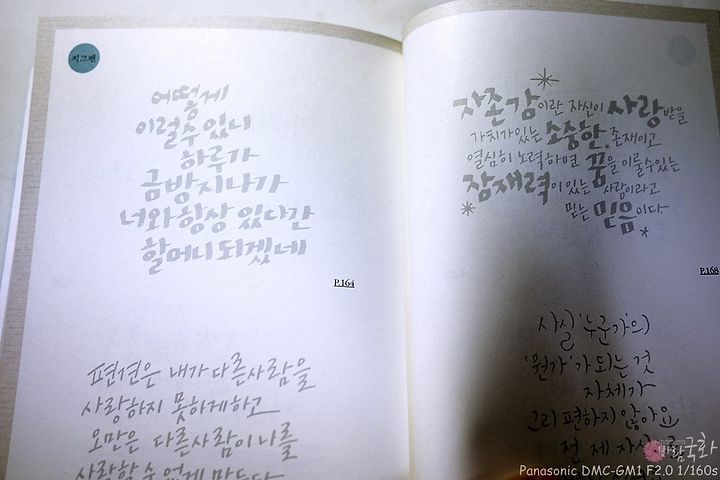 지그펜
어떻게
이럴수 있니
하루가
금방 지나가
너와 항상 있다간
할머니 되겠네
P.164
편견은 내가 다른사람을
사랑하지 못하게하고
오만은 다른사람이 나를
사랑할 수 없게 만든다
자존감이란 자신이 사랑받을
가치가있는 소중한 존재이고
열심히 노력하면 꿈을 이룰수있는
잠재력이 있는 사람이라고
믿는 믿음이다.
P.168
사실 '누군가'의
'뭔가'가 되는 것
자체가
그리 편하지 않아요
전 제 자신
바람국화
Panasonic DMC-GM1 F2.0 1/160s